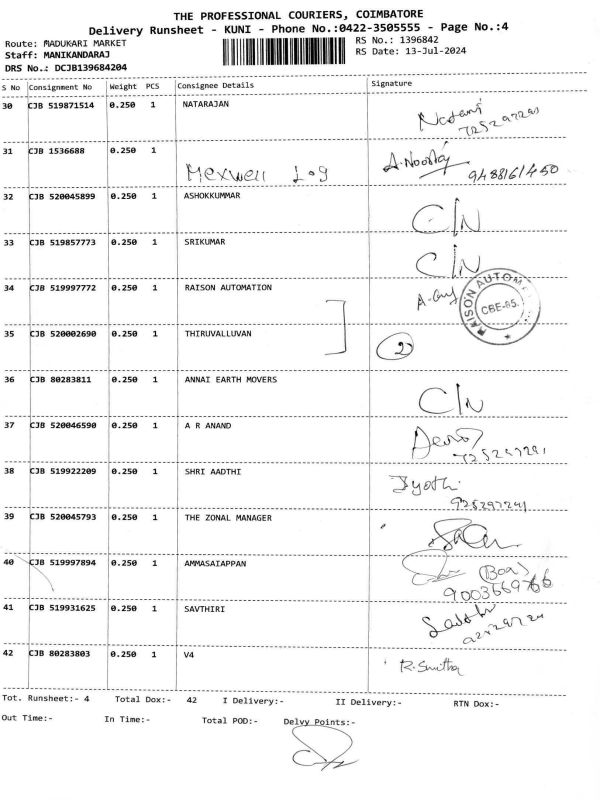 THE PROFESSIONAL COURIERS, COIMBATORE
Delivery Runsheet - KUNI - Phone No.:0422-3505555 - Page No.:4
Route: MADUKARI MARKET RS No.: 1396842
Staff: MANIKANDARAJ RS Date: 13-Jul-2024
DRS No.: DCJB139684204
S No Consignment No Weight PCS Consignee Details Signature
30 CJB 519871514 0.250 1 NATARAJAN
31 CJB 1536688 0.250 1
Mexwell Log
32 CJB 520045899 0.250 1 ASHOKKUMMAR C/N
33 CJB 519857773 0.250 1 SRIKUMAR C/N
34 CJB 519997772 0.250 1 RAISON AUTOMATION
RAISON AUTOM CBE-
35 CJB 520002690 0.250 1 THIRUVALLUVAN 2
36 CJB 80283811 0.250 1 ANNAI EARTH MOVERS C/N
37 CJB 520046590 0.250 1 A R ANAND
38 CJB 519922209 0.250 1 SHRI AADTHI Jyothi
925297291
39 CJB 520045793 0.250 1 THE ZONAL MANAGER
40 CJB 519997894 0.250 1 AMMASAIAPPAN
41 CJB 519931625 0.250 1 SAVTHIRI
42 CJB 80283803 0.250 1 V4 R. Smitha
Tot. Runsheet:- 4 Total Dox:- 42 I Delivery:- II Delivery:- RTN Dox:-
Out Time:- In Time:- Total POD:- Delvy Points:-